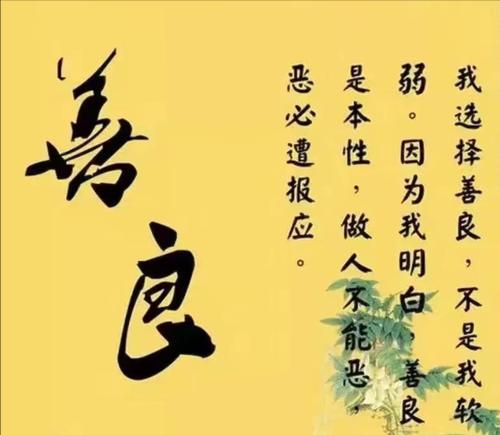 善良
我选择善良，不是我软
弱。因为我明白，善良
是本性，做人不能恶，
恶必遭报应。